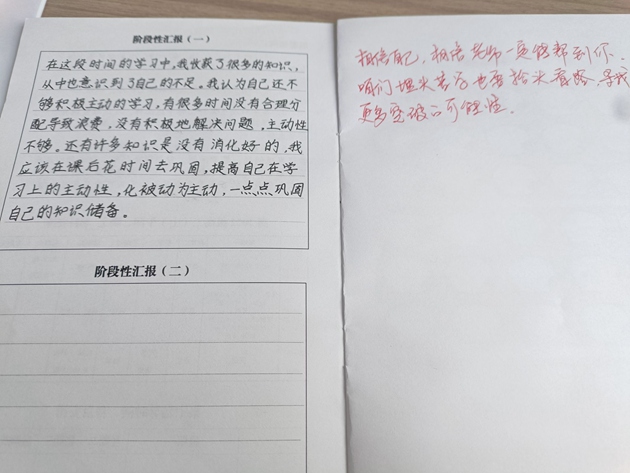 阶段性汇报（一）
在这段时间的学习中，我收获了很多的知识，
从中也意识到了自己的不足。我认为自己还不
够积极主动的学习，有很多时间没有合理分
配导致浪费，没有积极地解决问题，主动性
不够。还有许多知识是没有消化好的，我
应该在课后花时间去巩固，提高自己在学
习上的主动性，化被动为主动，一点点巩固
自己的知识储备。
阶段性汇报（二）
相信自己，相信老师一定能帮到你
咱们埋头苦学也要抬头看路，寻找
更多突破的可能性。